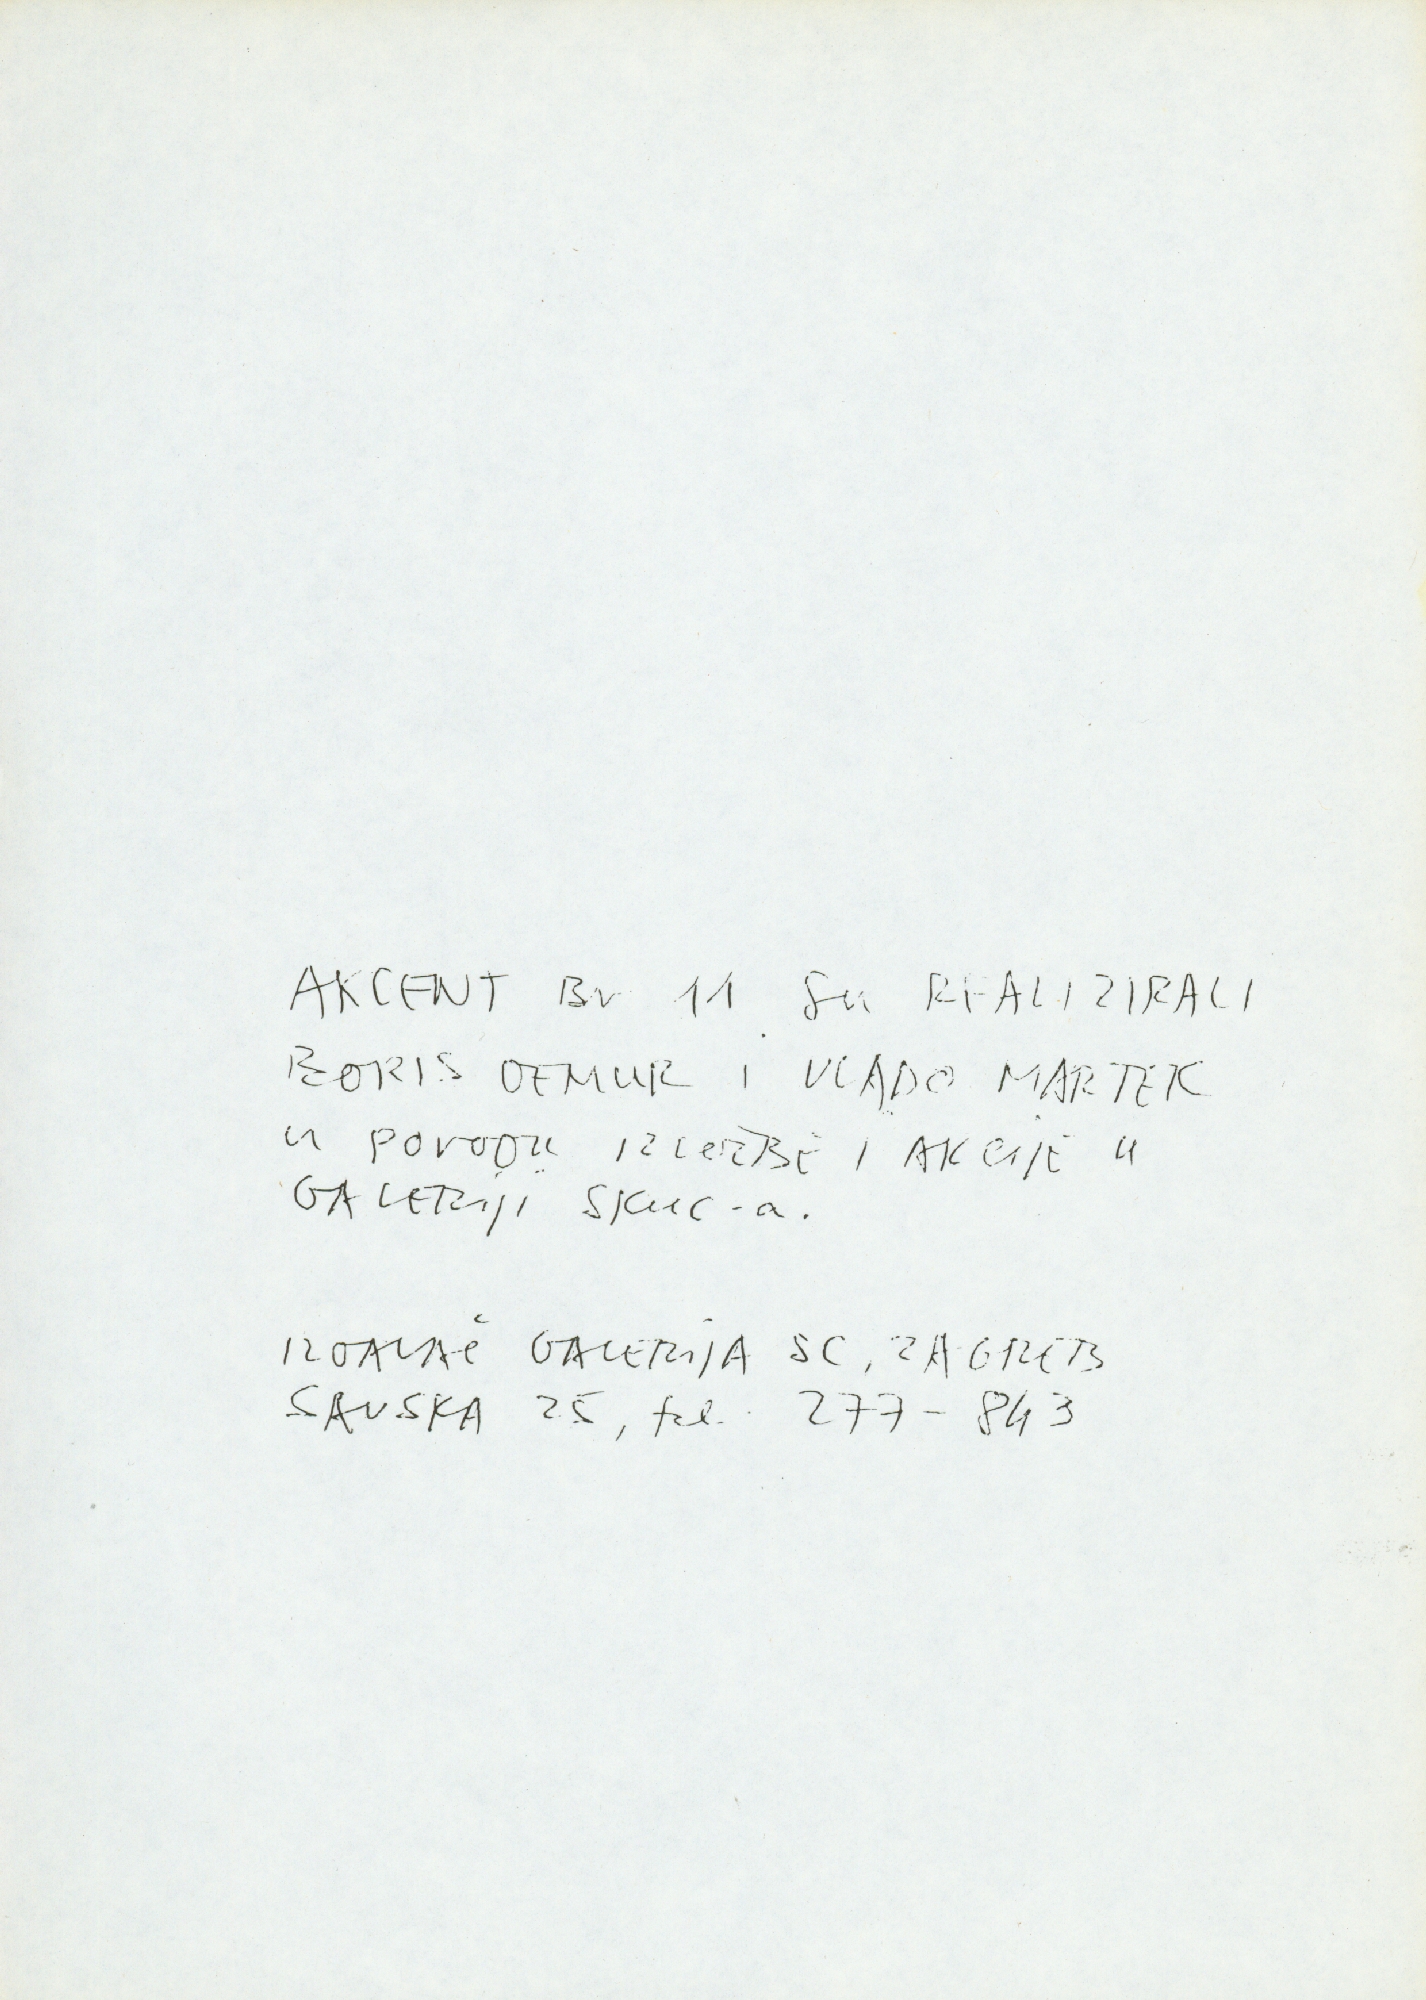 AKCENT Br 11 su REALIZIRALI
BORIS DEMUR i VLADO MARTEK
u povodu izložbe i AKCIJE u
GALERIJI SKUC-a.
IZDAVAČ GALERIJA SC, ZAGREB
SAVSKA 25, tel. 277-843